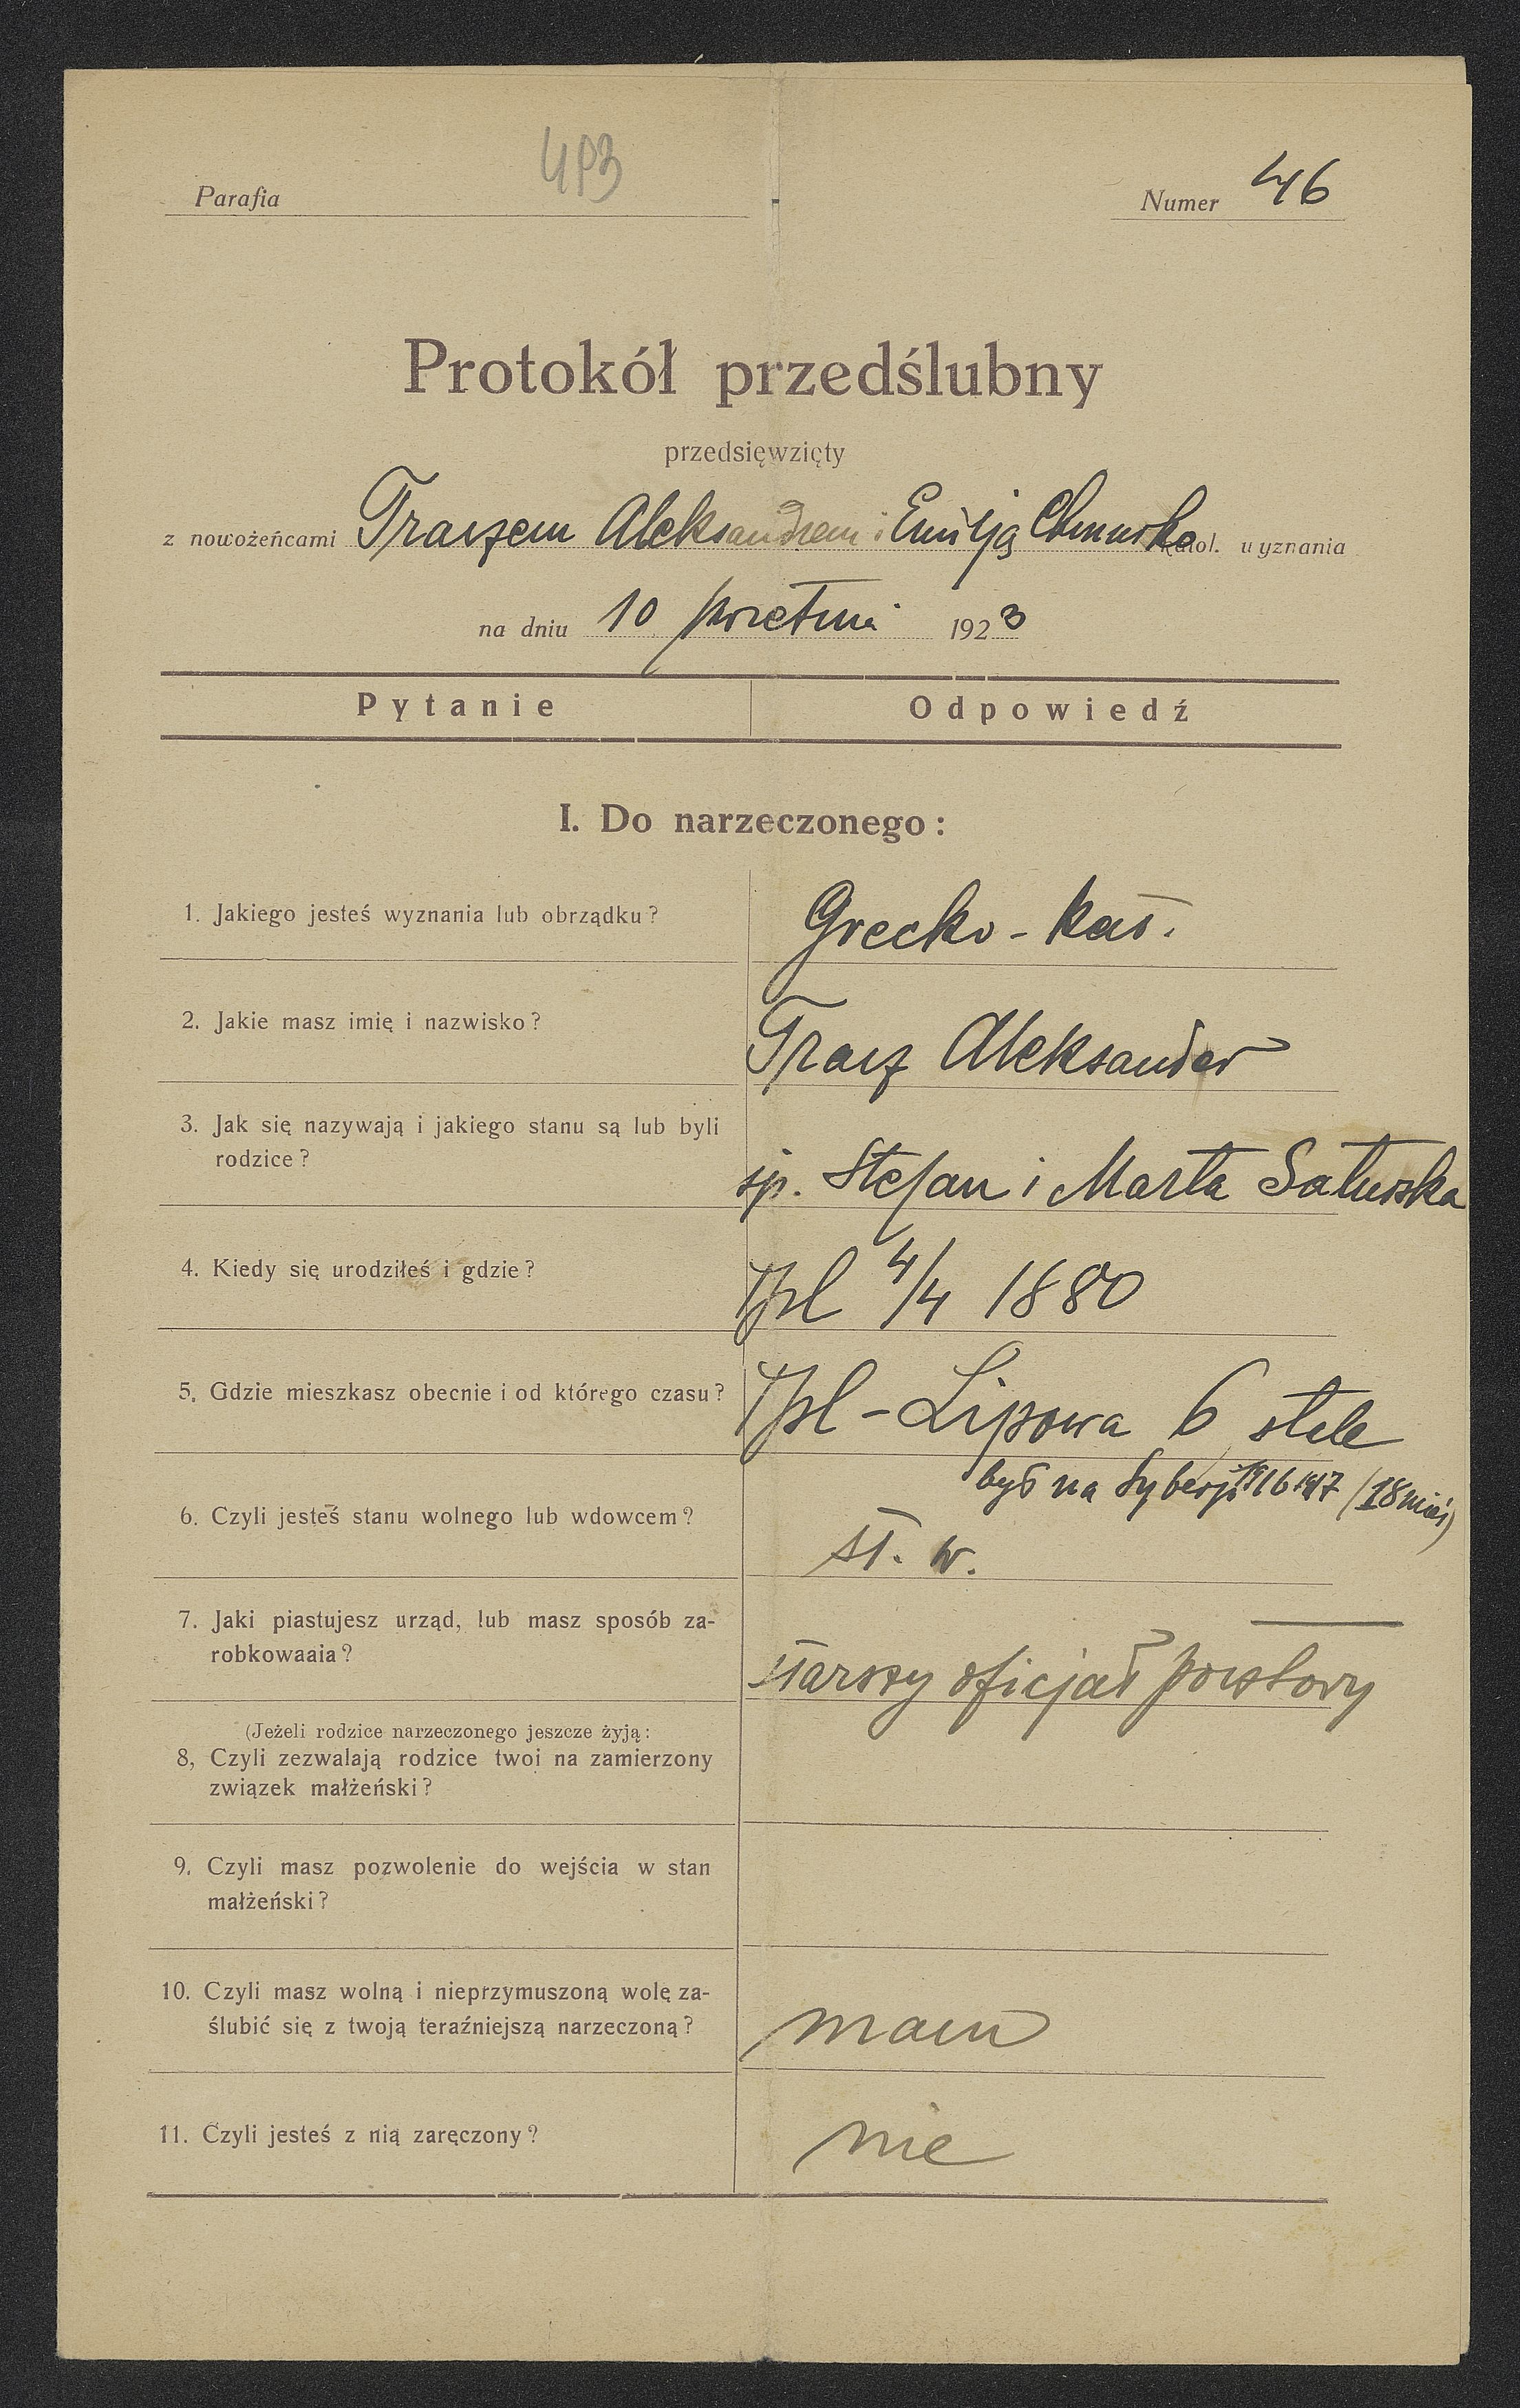 493
Parafia
Numer 46
Protokół przedślubny
przedsięwzięty
z nowożeńcami Traczem Aleksandrem i Emilją Chmurską katol. wyznania
na dniu 10 kwietnia 1923
Pytanie Odpowiedź
I. Do narzeczonego:
1. Jakiego jesteś wyznania lub obrządku? Grecko-kat.
2. Jakie masz imię i nazwisko? Tracz Aleksander
3. Jak się nazywają i jakiego stanu są lub byli
rodzice? śp. Stefan i Marta Saturska
4. Kiedy się urodziłeś i gdzie? Tpl 4/4 1880
5. Gdzie mieszkasz obecnie i od którego czasu? Tpl - Lipowa 6 stale
był na Syberji 1916 1917 (18 mies)
6. Czyli jesteś stanu wolnego lub wdowcem? st. w.
7. Jaki piastujesz urząd, lub masz sposób za-
robkowaaia? starszy oficjał pocztowy
(Jeżeli rodzice narzeczonego jeszcze żyją:
8, Czyli zezwalają rodzice twoi na zamierzony
związek małżeński?
9. Czyli masz pozwolenie do wejścia w stan
małżeński?
10. Czyli masz wolną i nieprzymuszoną wolę za-
ślubić się z twoją teraźniejszą narzeczoną? mam
11. Czyli jesteś z nią zaręczony? nie